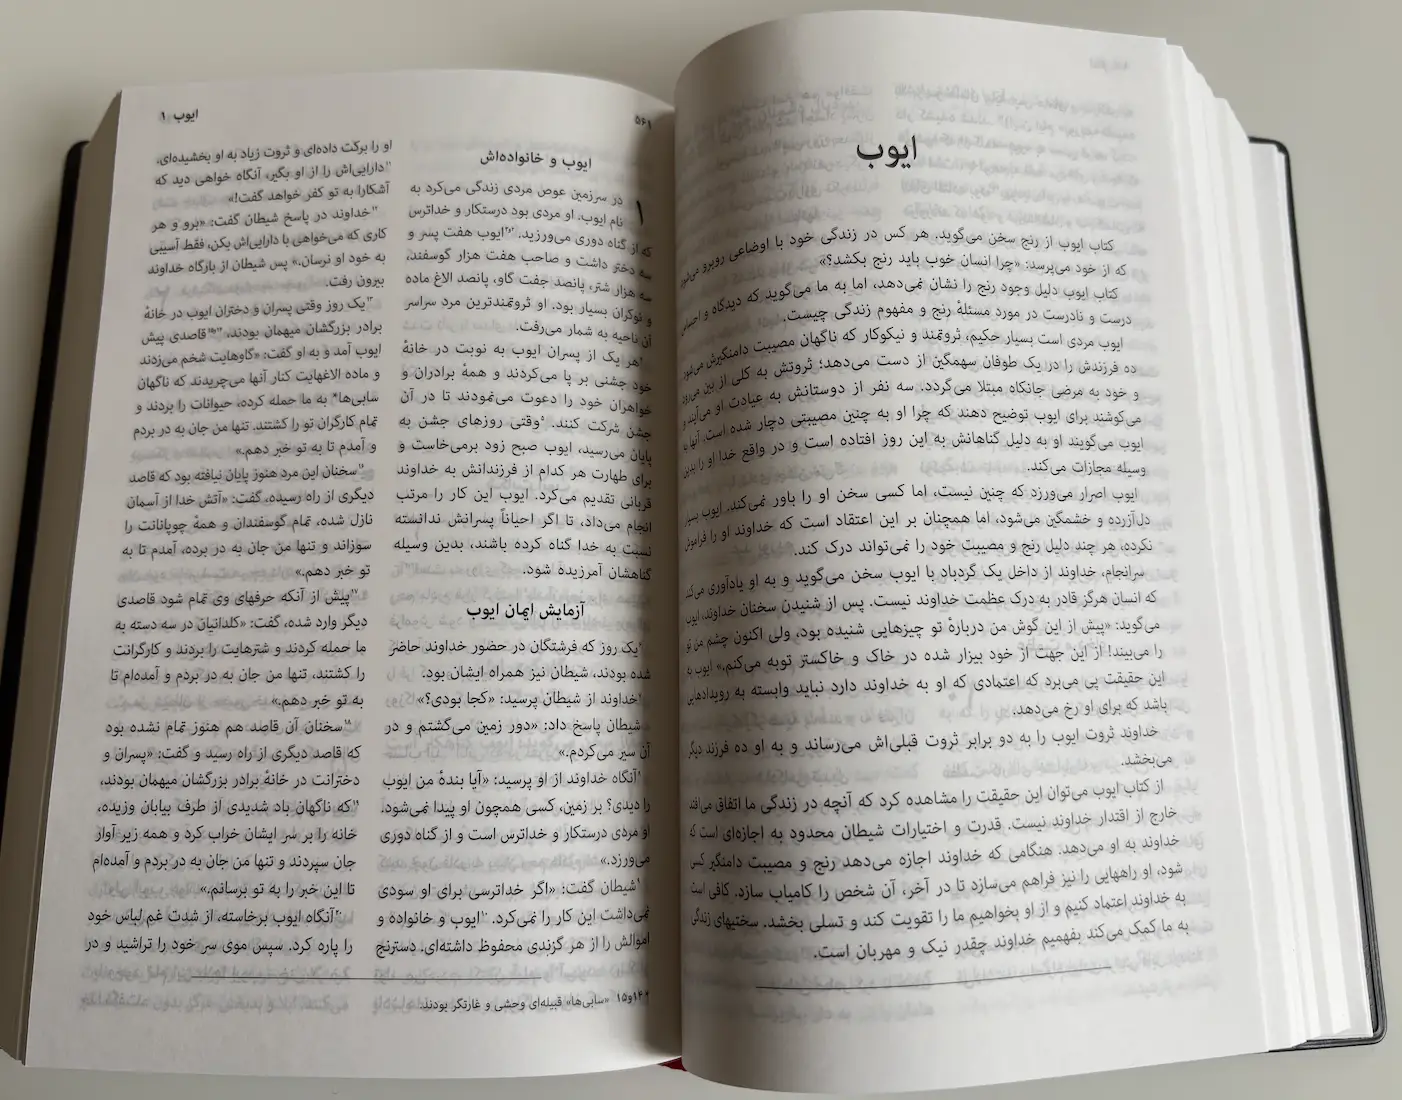 ایوب
کتاب ایوب از رنج سخن می‌گوید. هر کس در زندگی خود با اوضاعی روبرو می‌شود
که از خود می‌پرسد: «چرا انسان خوب باید رنج بکشد؟»
کتاب ایوب دلیل وجود رنج را نشان نمی‌دهد، اما به ما می‌گوید که دیدگاه و احساس
درست و نادرست در مورد مسئلهٔ رنج و مفهوم زندگی چیست.
ایوب مردی است بسیار حکیم، ثروتمند و نیکوکار که ناگهان مصیبت دامنگیرش می‌شود
ده فرزندش را در یک طوفان سهمگین از دست می‌دهد؛ ثروتش به کلی از بین می‌رود
و خود به مرضی جانکاه مبتلا می‌گردد. سه نفر از دوستانش به عیادت او می‌آیند و
می‌کوشند برای ایوب توضیح دهند که چرا او به چنین مصیبتی دچار شده است. آنها به
ایوب می‌گویند او به دلیل گناهانش به این روز افتاده است و در واقع خدا او را بدین
وسیله مجازات می‌کند.
ایوب اصرار می‌ورزد که چنین نیست، اما کسی سخن او را باور نمی‌کند. ایوب بسیار
دل‌آزرده و خشمگین می‌شود، اما همچنان بر این اعتقاد است که خداوند او را فراموش
نکرده، هر چند دلیل رنج و مصیبت خود را نمی‌تواند درک کند.
سرانجام، خداوند از داخل یک گردباد با ایوب سخن می‌گوید و به او یادآوری می‌کند
که انسان هرگز قادر به درک عظمت خداوند نیست. پس از شنیدن سخنان خداوند، ایوب
می‌گوید: «پیش از این گوش من دربارهٔ تو چیزهایی شنیده بود، ولی اکنون چشم من تو
را می‌بیند! از این جهت از خود بیزار شده در خاک و خاکستر توبه می‌کنم.» ایوب به
این حقیقت پی می‌برد که اعتمادی که او به خداوند دارد نباید وابسته به رویدادهایی
باشد که برای او رخ می‌دهد.
خداوند ثروت ایوب را به دو برابر ثروت قبلی‌اش می‌رساند و به او ده فرزند دیگر
می‌بخشد.
از کتاب ایوب می‌توان این حقیقت را مشاهده کرد که آنچه در زندگی ما اتفاق می‌افتد
خارج از اقتدار خداوند نیست. قدرت و اختیارات شیطان محدود به اجازه‌ای است که
خداوند به او می‌دهد. هنگامی که خداوند اجازه می‌دهد رنج و مصیبت دامنگیر کسی
شود، او راههایی را نیز فراهم می‌سازد تا در آخر، آن شخص را کامیاب سازد. کافی است
به خداوند اعتماد کنیم و از او بخواهیم ما را تقویت کند و تسلی بخشد. سختیهای زندگی
به ما کمک می‌کند بفهمیم خداوند چقدر نیک و مهربان است.
۵۶۱
ایوب ۱
ایوب و خانواده‌اش
۱ در سرزمین عوص مردی زندگی می‌کرد به
نام ایوب. او مردی بود درستکار و خداترس
که از گناه دوری می‌ورزید. ²٫³ایوب هفت پسر و
سه دختر داشت و صاحب هفت هزار گوسفند،
سه هزار شتر، پانصد جفت گاو، پانصد الاغ ماده
و نوکران بسیار بود. او ثروتمندترین مرد سراسر
آن ناحیه به شمار می‌رفت.
⁴هر یک از پسران ایوب به نوبت در خانهٔ
خود جشنی بر پا می‌کردند و همهٔ برادران و
خواهران خود را دعوت می‌نمودند تا در آن
جشن شرکت کنند. ⁵وقتی روزهای جشن به
پایان می‌رسید، ایوب صبح زود برمی‌خاست و
برای طهارت هر کدام از فرزندانش به خداوند
قربانی تقدیم می‌کرد. ایوب این کار را مرتب
انجام می‌داد، تا اگر احیاناً پسرانش ندانسته
نسبت به خدا گناه کرده باشند، بدین وسیله
گناهشان آمرزیده شود.
آزمایش ایمان ایوب
⁶یک روز که فرشتگان در حضور خداوند حاضر
شده بودند، شیطان نیز همراه ایشان بود.
⁷خداوند از شیطان پرسید: «کجا بودی؟»
شیطان پاسخ داد: «دور زمین می‌گشتم و در
آن سیر می‌کردم.»
⁸آنگاه خداوند از او پرسید: «آیا بندهٔ من ایوب
را دیدی؟ بر زمین، کسی همچون او پیدا نمی‌شود.
او مردی درستکار و خداترس است و از گناه دوری
می‌ورزد.»
⁹شیطان گفت: «اگر خداترسی برای او سودی
نمی‌داشت این کار را نمی‌کرد. ¹⁰ایوب و خانواده و
اموالش را از هر گزندی محفوظ داشته‌ای. دسترنج
او را برکت داده‌ای و ثروت زیاد به او بخشیده‌ای.
¹¹دارایی‌اش را از او بگیر، آنگاه خواهی دید که
آشکارا به تو کفر خواهد گفت!»
¹²خداوند در پاسخ شیطان گفت: «برو و هر
کاری که می‌خواهی با دارایی‌اش بکن، فقط آسیبی
به خود او نرسان.» پس شیطان از بارگاه خداوند
بیرون رفت.
¹³یک روز وقتی پسران و دختران ایوب در خانهٔ
برادر بزرگشان میهمان بودند، ¹⁴٫¹⁵قاصدی پیش
ایوب آمد و به او گفت: «گاوهایت شخم می‌زدند
و ماده الاغهایت کنار آنها می‌چریدند که ناگهان
سابی‌ها* به ما حمله کرده، حیوانات را بردند و
تمام کارگران تو را کشتند. تنها من جان به در بردم
و آمدم تا به تو خبر دهم.»
¹⁶سخنان این مرد هنوز پایان نیافته بود که قاصد
دیگری از راه رسیده، گفت: «آتش خدا از آسمان
نازل شده، تمام گوسفندان و همهٔ چوپانانت را
سوزاند و تنها من جان به در برده، آمدم تا به
تو خبر دهم.»
¹⁷پیش از آنکه حرفهای وی تمام شود قاصدی
دیگر وارد شده، گفت: «کلدانیان در سه دسته به
ما حمله کردند و شترهایت را بردند و کارگرانت
را کشتند، تنها من جان به در بردم و آمده‌ام تا
به تو خبر دهم.»
¹⁸سخنان آن قاصد هم هنوز تمام نشده بود
که قاصد دیگری از راه رسید و گفت: «پسران و
دخترانت در خانهٔ برادر بزرگشان میهمان بودند،
¹⁹که ناگهان باد شدیدی از طرف بیابان وزیده،
خانه را بر سر ایشان خراب کرد و همه زیر آوار
جان سپردند و تنها من جان به در بردم و آمده‌ام
تا این خبر را به تو برسانم.»
²⁰آنگاه ایوب برخاسته، از شدت غم لباس خود
را پاره کرد. سپس موی سر خود را تراشید و در
۱۴:۱و۱۵ «سابی‌ها» قبیله‌ای وحشی و غارتگر بودند.